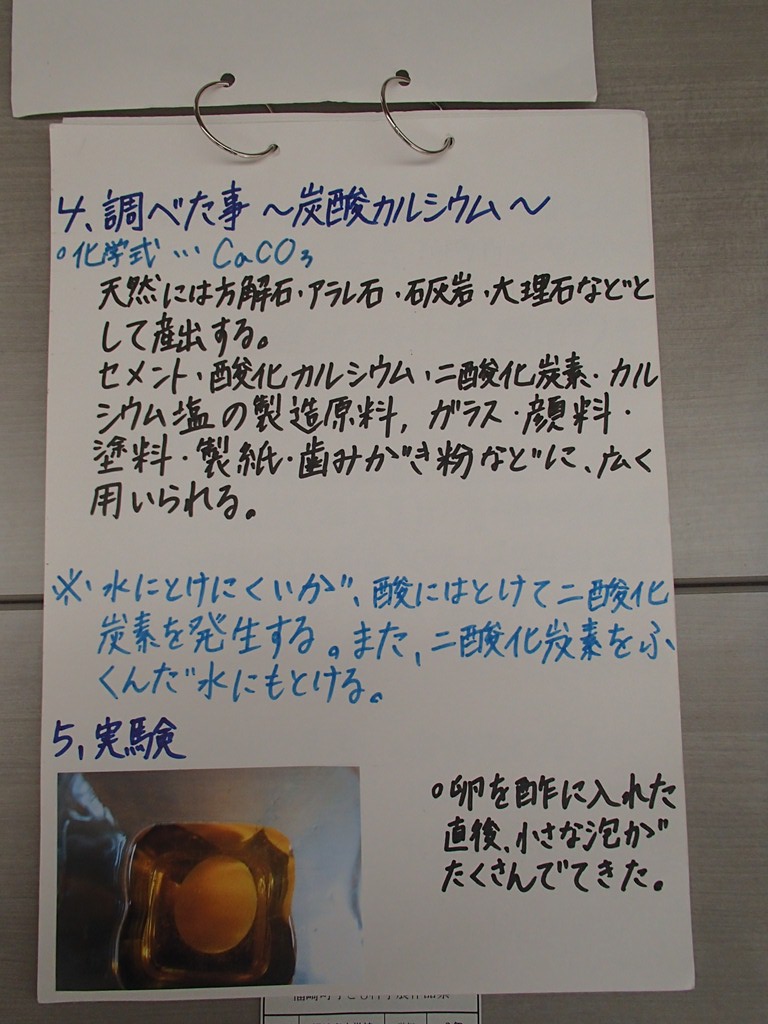 4、調べた事 ～炭酸カルシウム～
○化学式… CaCO₃
天然には方解石・アラレ石・石灰岩・大理石などと
して産出する。
セメント・酸化カルシウム・二酸化炭素・カル
シウム塩の製造原料, ガラス・顔料・
塗料・製紙・歯みがき粉などに、広く
用いられる。
※、水にとけにくいが、酸にはとけて二酸化
炭素を発生する。また、二酸化炭素をふ
くんだ水にもとける。
5、実験
○卵を酢に入れた
直後、小さな泡が
たくさんでてきた。